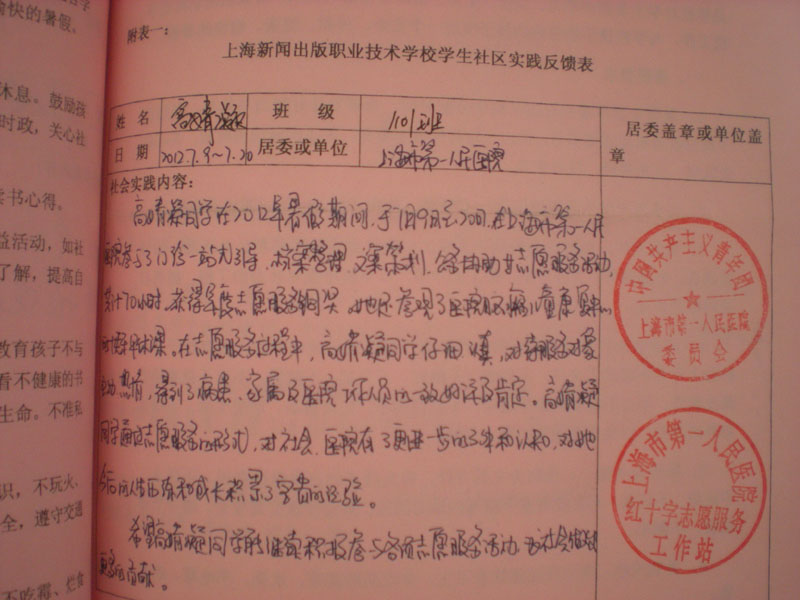 愉快的暑假、
沐息。鼓励孩
时政，关心社
读书心得。
益活动，如社
了解，提高自
教育孩子不与
看不健康的书
生命。不准私
识，不玩火、
全，遵守交通
不吃得、烂食
附表一：
上海新闻出版职业技术学校学生社区实践反馈表
姓 名 高晴凝 班 级 1101班
居委盖章或单位盖章
日 期 2012.7.9~7.20 居委或单位 上海市第一人民医院
社会实践内容：
高晴凝同学在2012年暑假期间，于7月9日至20日，在上海市第一人民
医院参与了门诊一站式引导、档案整理、文案策划、公务协助等志愿服务活动，
共计70小时，获得年度志愿服务铜奖。她还参观了医院脑瘫儿童康复中心
在志愿服务过程中，高晴凝同学仔细认真，对待服务对象
主动热情，得到了病患、家属及医院工作人员的一致好评及肯定。高晴凝
同学通过志愿服务的形式，对社会、医院有了更进一步的了解和认知，对她
今后的人生历练和成长积累了宝贵的经验。
希望高晴凝同学能继续积极参与各项志愿服务活动，为社会做出
更多的贡献。
中国共产主义青年团
上海市第一人民医院
委员会
上海市第一人民医院
红十字志愿服务
工作站